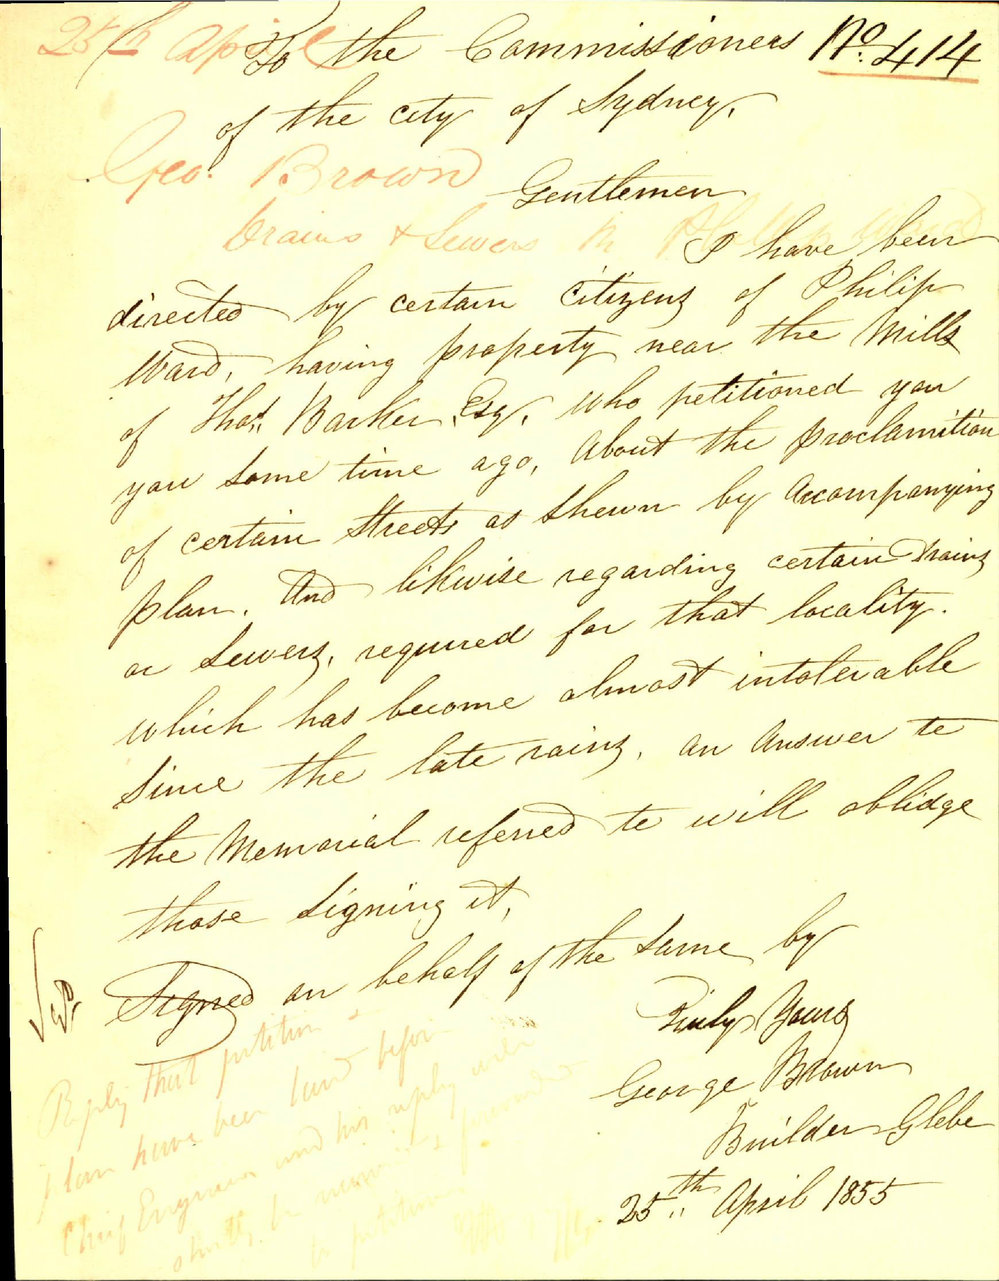 25th April
To the Commissioners No. 414
of the city of Sydney,
Geo. Brown
Gentlemen
Drains & Sewers in Phillip Ward
I have been
directed by certain citizens of Philip
Ward, having property near the Mills
of Thos. Barker, Esq, who petitioned you
you some time ago, About the proclamition
of certain Streets as shewn by Accompanying
plan. And likwise regarding certain Drains
or Sewers, required for that locality.
which has become almost intolerable
since the late rains, an Answer to
the Memorial referred to will oblidge
those signing it,
Signed on behalf of the same by
Truly Yours
George Brown
Builder Glebe
25th April 1855
Reply that petition &
plan have been laid before
Chief Engineer and his reply will
shortly be received & forwarded
to petitioners